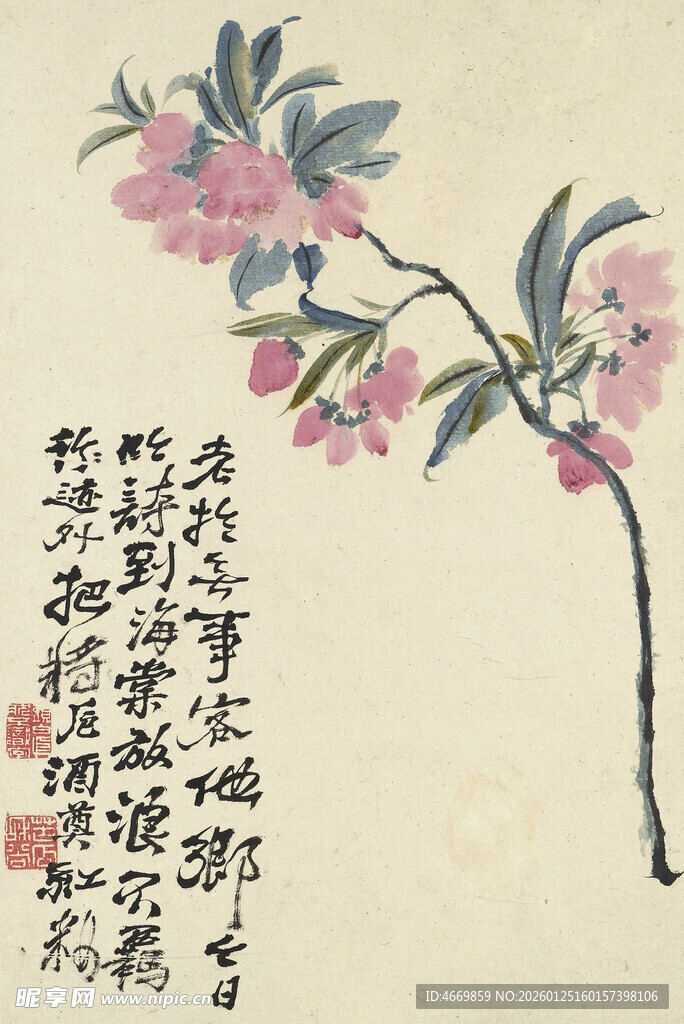 老於無事客他鄉今日
吟詩到海棠放浪不羈
形迹外把將卮酒奠紅粧
昵享网 www.nipic.cn
ID:4669859 NO:20260125160157398106